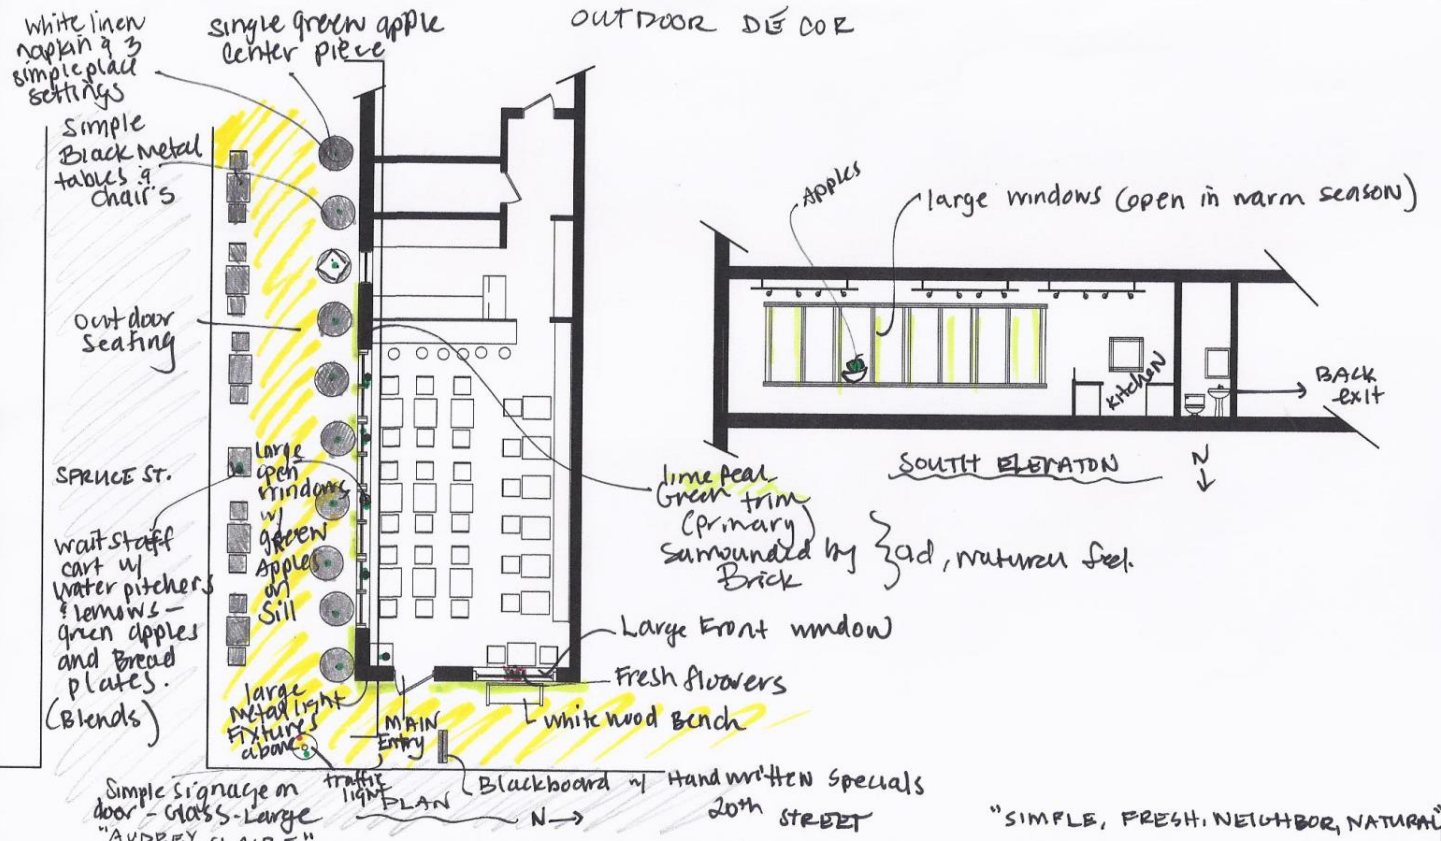 OUTDOOR DÉCOR
white linen
napkin & 3
simple place
settings
single green apple
center piece
Simple
Black metal
tables &
chairs
outdoor
seating
SPRUCE ST.
waitstaff
cart w/
water pitchers
& lemons –
green apples
and Bread
plates.
(Blends)
large
open
windows
w/
green
apples
on
Sill
large
metal light
fixtures
above
MAIN
Entry
traffic
light
Simple signage on
door - Glass - Large
"AUDREY CLAIRE"
PLAN
N→
Blackboard w/ Handwritten Specials
20th STREET
white wood Bench
Fresh flowers
Large Front window
lime peal
Green trim
(primary)
surrounded by
Brick
natural feel.
Apples
large windows (open in warm season)
Kitchen
BACK
exit
SOUTH ELEVATON
N
"SIMPLE, FRESH, NEIGHBOR, NATURAL"